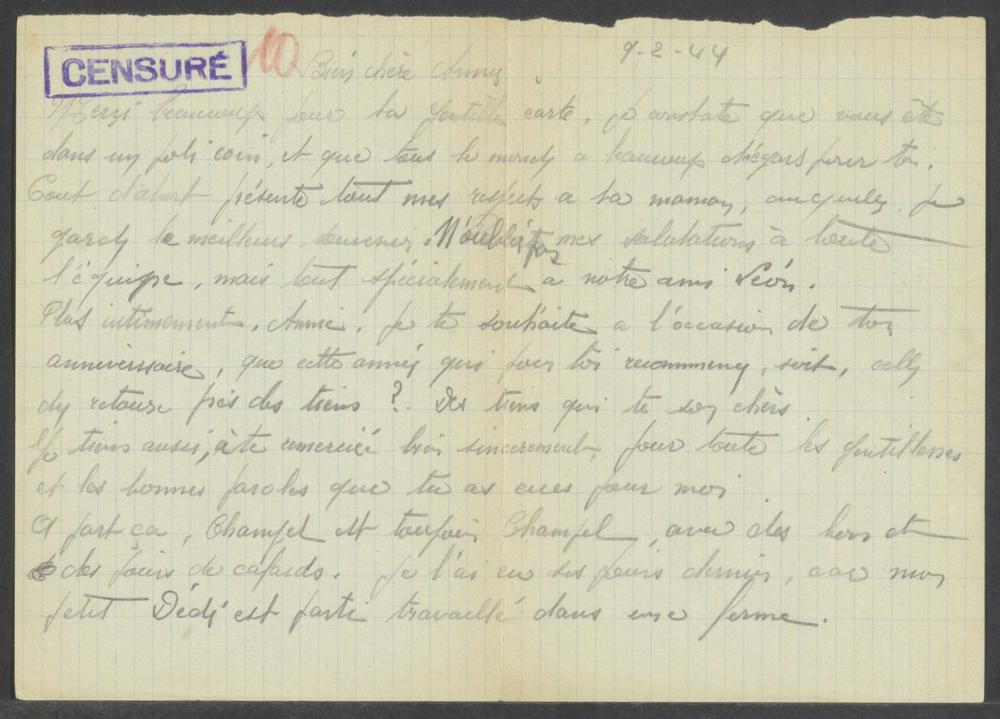 CENSURÉ 10 Bien chère Anny. 9-2-44
Merçi beaucoup pour ta gentille carte, je constate que vous ête
dans un joli coin, et que tous le monde a beaucoup d'égars pour toi.
Tout d'abort présente tout mes respects a ta maman, auquelle je
garde le meilleurs souvenir. N'oublie pas mes salutations à toute
l'équipe, mais tout spécialement a notre ami Léon.
Plus intimement, Annie, je te souhaite a l'occasion de ton
anniverssaire, que cette année qui pour toi recommence, soit, celle
du retour près des tiens ?. Des tiens qui te son chèrs.
Je tiens aussi, à te remercié bien sincerement, pour toute les gentillesses
et les bonnes paroles que tu as eues pour moi.
A part ça, Champel est toujour Champel, avec des hors et
des jours de cafards. Je l'ai eu ses jours dernier, car mon
petit Dédé est parti travaillé dans une ferme.